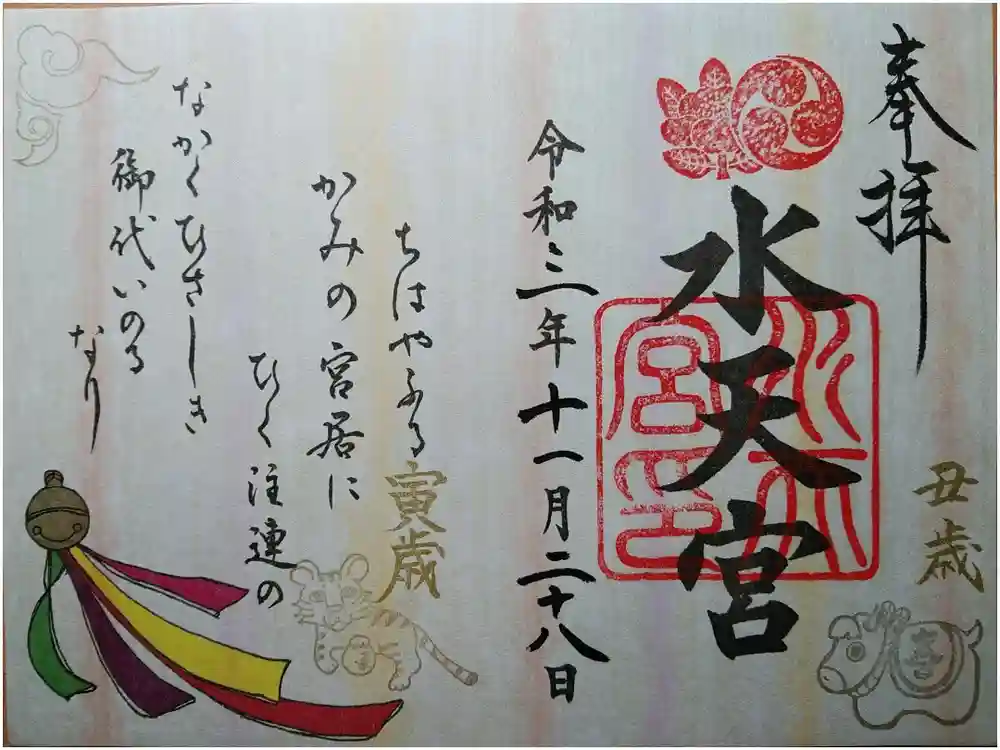 奉拝
丑歳
水天宮
水天宮印
令和三年十一月二十八日
寅歳
ちはやふる
かみの宮居に
ひく注連の
なかくひさしき
御代いのる
なり